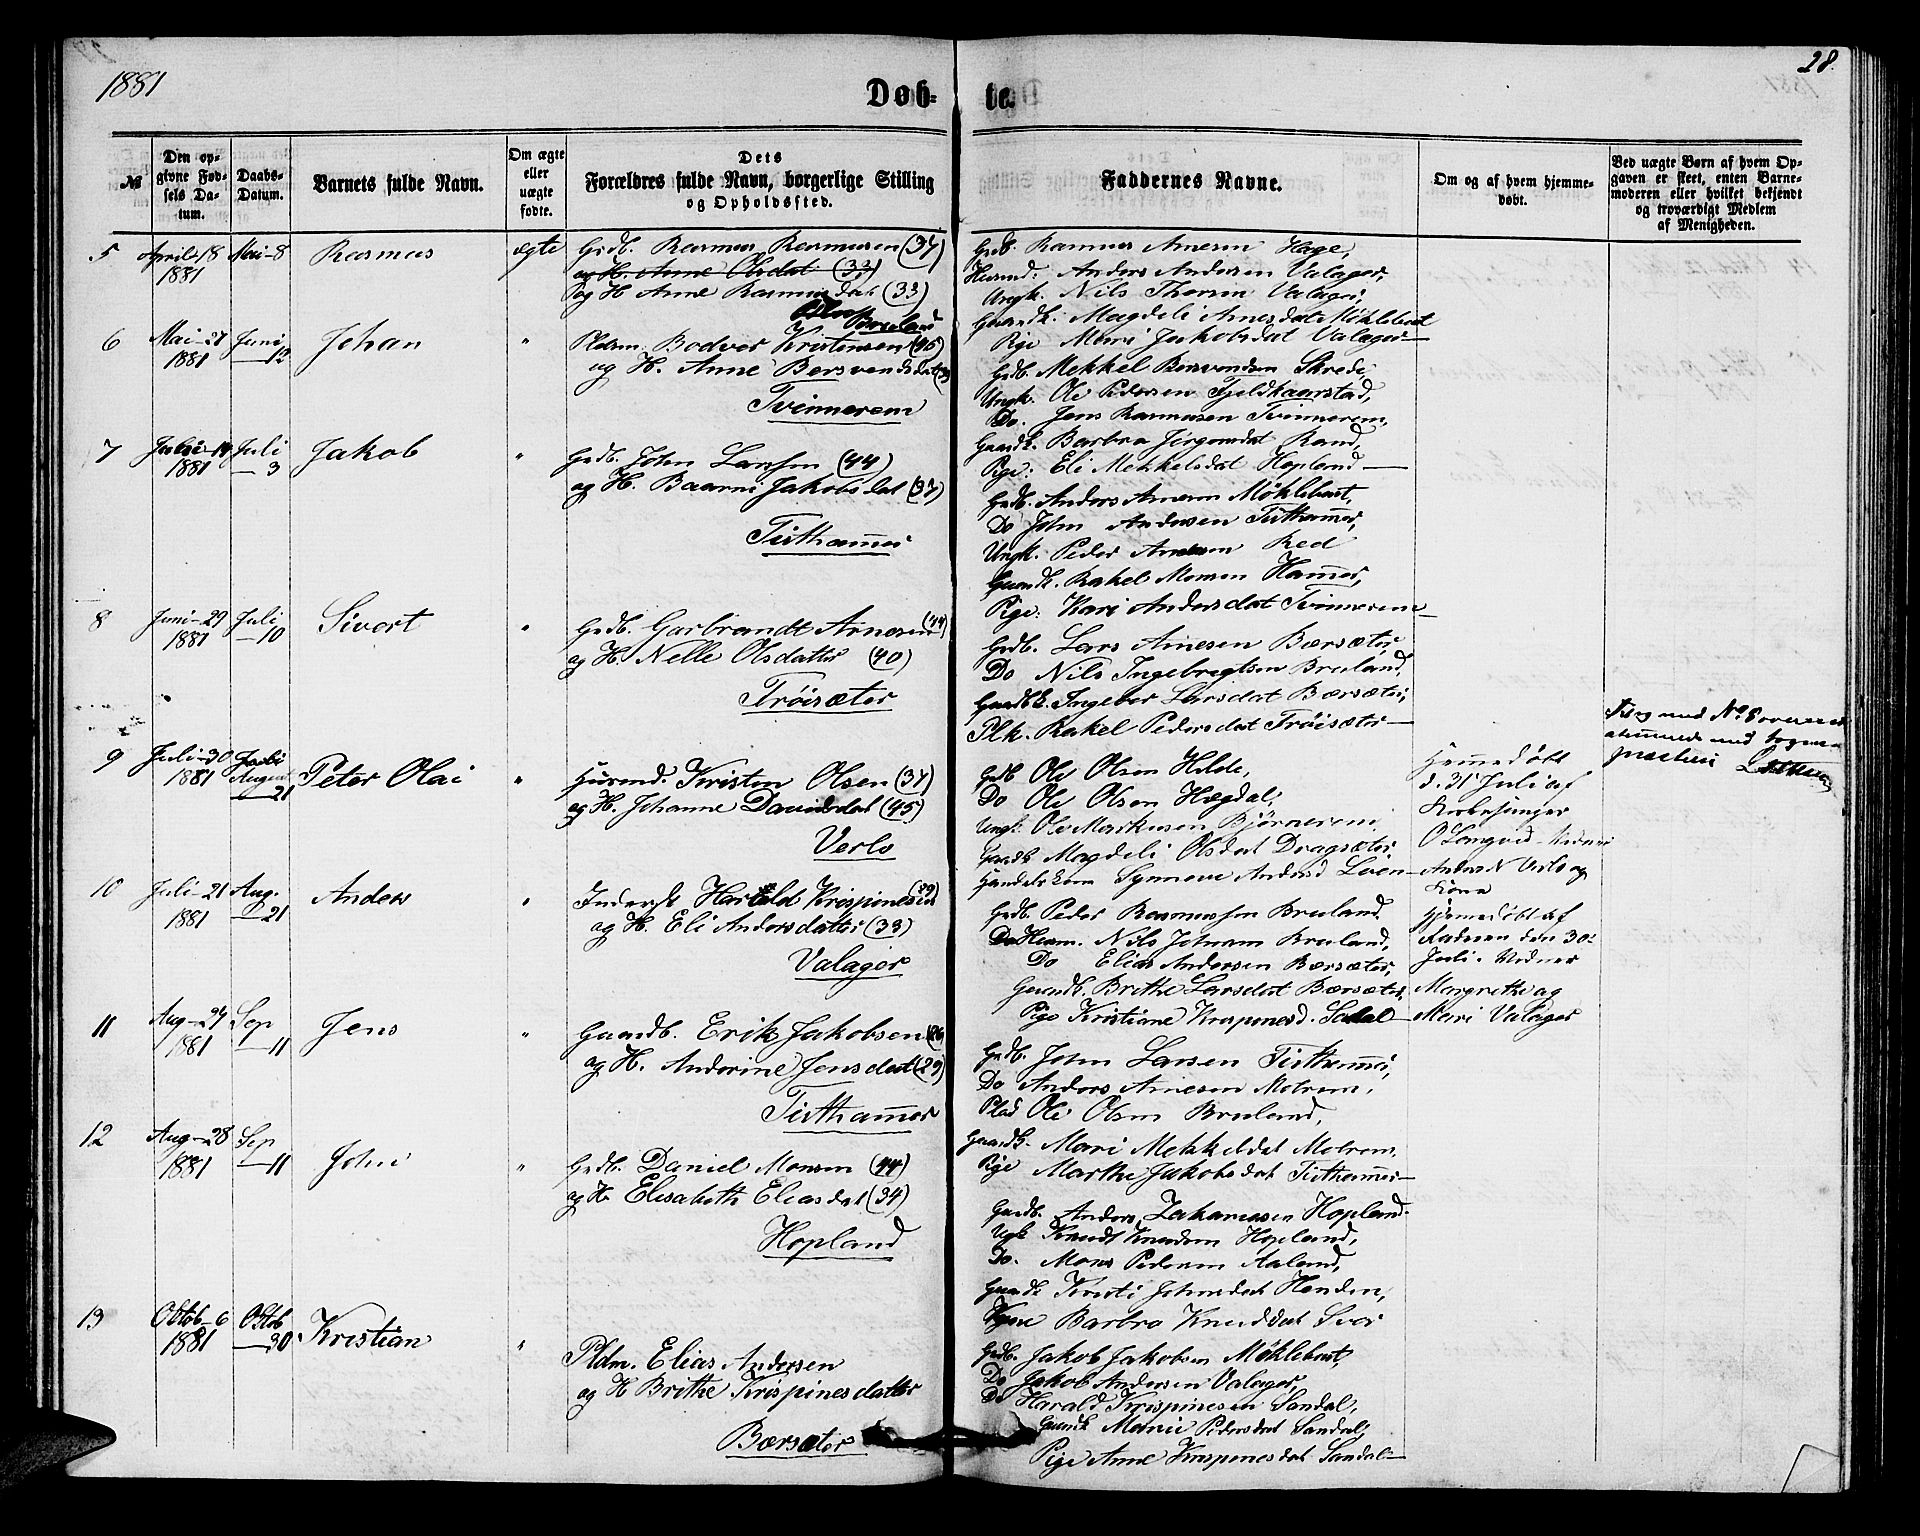 1881
Døb-
te.
28.
№
Den op-
givne Fød-
sels Da-
tum.
Daabs-
Datum.
Barnets fulde Navn.
Om ægte
eller
uægte
fødte.
Dets
Forældres fulde Navn, borgerlige Stilling
og Opholdssted.
Faddernes Navne.
Om og af hvem hjemme-
døbt.
Ved uægte Børn af hvem Op-
gaven er skeet, enten Barne-
moderen eller hvilket bekjendt
og troværdigt Medlem
af Menigheden.
5
April 18
1881
Mai 8
Rasmus
ægte
Grdb. Rasmus Rasmusen (37)
og H. Anne Olsdat (33)
og H Anne Rasmusdat (33)
Bruland
Grdb. Rasmus Arnesen Hage,
Husmd. Anders Andersen Valager,
Ungk. Nils Thorsen Valager,
Gaardk. Magdeli Arnesdat Møklebust
Pige Mari Jakobsdat Valager
6
Mai 27
1881
Juni
12
Johan
"
Pldsm. Bodver Kristensen (45)
og H. Anne Bersvendsdat
Tvinnerem
Grdb. Mekkel Bersvendsen Skrede,
Ungk. Ole Pedersen Fjeldkaarstad,
Do. Jens Rasmusen Tvinnerem,
Gaardk. Barbra Jørgensdat Rand,
Pige: Eli Mekkelsdat Hopland
7
1881
Juli
3
Jakob
"
Grdb. John Larsen (44)
og H. Baarni Jakobsdat (37)
Tisthammer
Grdb. Anders Arnesen Møklebust,
Do John Andersen Tisthammer,
Ungk. Peder Arnesen Red
Gaardk. Rakel Monsen Hammer,
Pige: Kari Andersdat Tvinnerem
8
Juni 29
1881
Juli
10
Sivert
"
Grdb. Garbrandt Arnesen (44)
og H. Nelle Olsdatter (40)
Trøisæter
Grdb. Lars Arnesen Bærsæter,
Do Nils Ingebregtsen Bruland,
Gaardbk. Ingebor Larsdat Bærsæter,
Plk. Rakel Pedersdat Trøisæter
9
Juli 30
1881
Juli
August
21
Peter Olai
"
Husmd. Kristen Olsen (37)
og H. Johanne Davidsdat (45)
Verlo
Grdb Ole Olsen Hilde,
Do Ole Olsen Hægdal,
Ungk. Ole Markusen Bjørnerem,
Gaardk Magdeli Olsdat Dragsæter
Handelskone Synneve Andersd Loen
Hjemmedøbt
d. 31 Juli af
Kirkesanger
Anders N Verlo og
Kone
10
Juli 21
1881
Aug.
21
Anders
"
Inderst Harald Krispinesen (29)
og H. Eli Andersdatter (33)
Valager
Grdb. Peder Rasmussen Bruland
Do Husm. Nils Johnsen Bruland,
Do Elias Andersen Bærsæter,
Gaardb. Brithe Larsdat Bærsæter,
Pige Kristiane Krispinesd. Sandal
Hjemmedøbt af
Faderen den 30
Juli. Vidner
Margrethe og
Mari Valager
11
Aug 24
1881
Sep
11
Jens
"
Gaardb. Erik Jakobsen
og H. Andorine Jensdat (29)
Tisthammer
Grdb. John Larsen Tisthammer,
Do Anders Arnesen Molrem,
Plad Ole Olsen Bruland,
Gaardk. Mari Mekkelsdat Molrem,
Pige Marthe Jakobsdat Tisthammer
12
Aug 28
1881
Sep
11
John
"
Grdb. Daniel Monsen (44)
og H. Elisabeth Eliasdat (34)
Hopland
Gaardb. Anders Zakariassen Hopland
Ugk Knudt Knudsen Hopland,
Do. Mons Pedersen Aaland,
Gaardk Kristi Johnsdat Henden,
Barbra Knudsdat Svor
13
Oktob 6
1881
Oktob
30
Kristian
"
Pldm. Elias Andersen
og H Brithe Krispinesdatter
Bærsæter
Grdb. Jakob Jakobsen Møklebust,
Do Jakob Andersen Valager,
Do Harald Krispinesen Sandal,
Gaardk Marie Pedersdat Sandal,
Pige Anne Krispinesdat Sandal